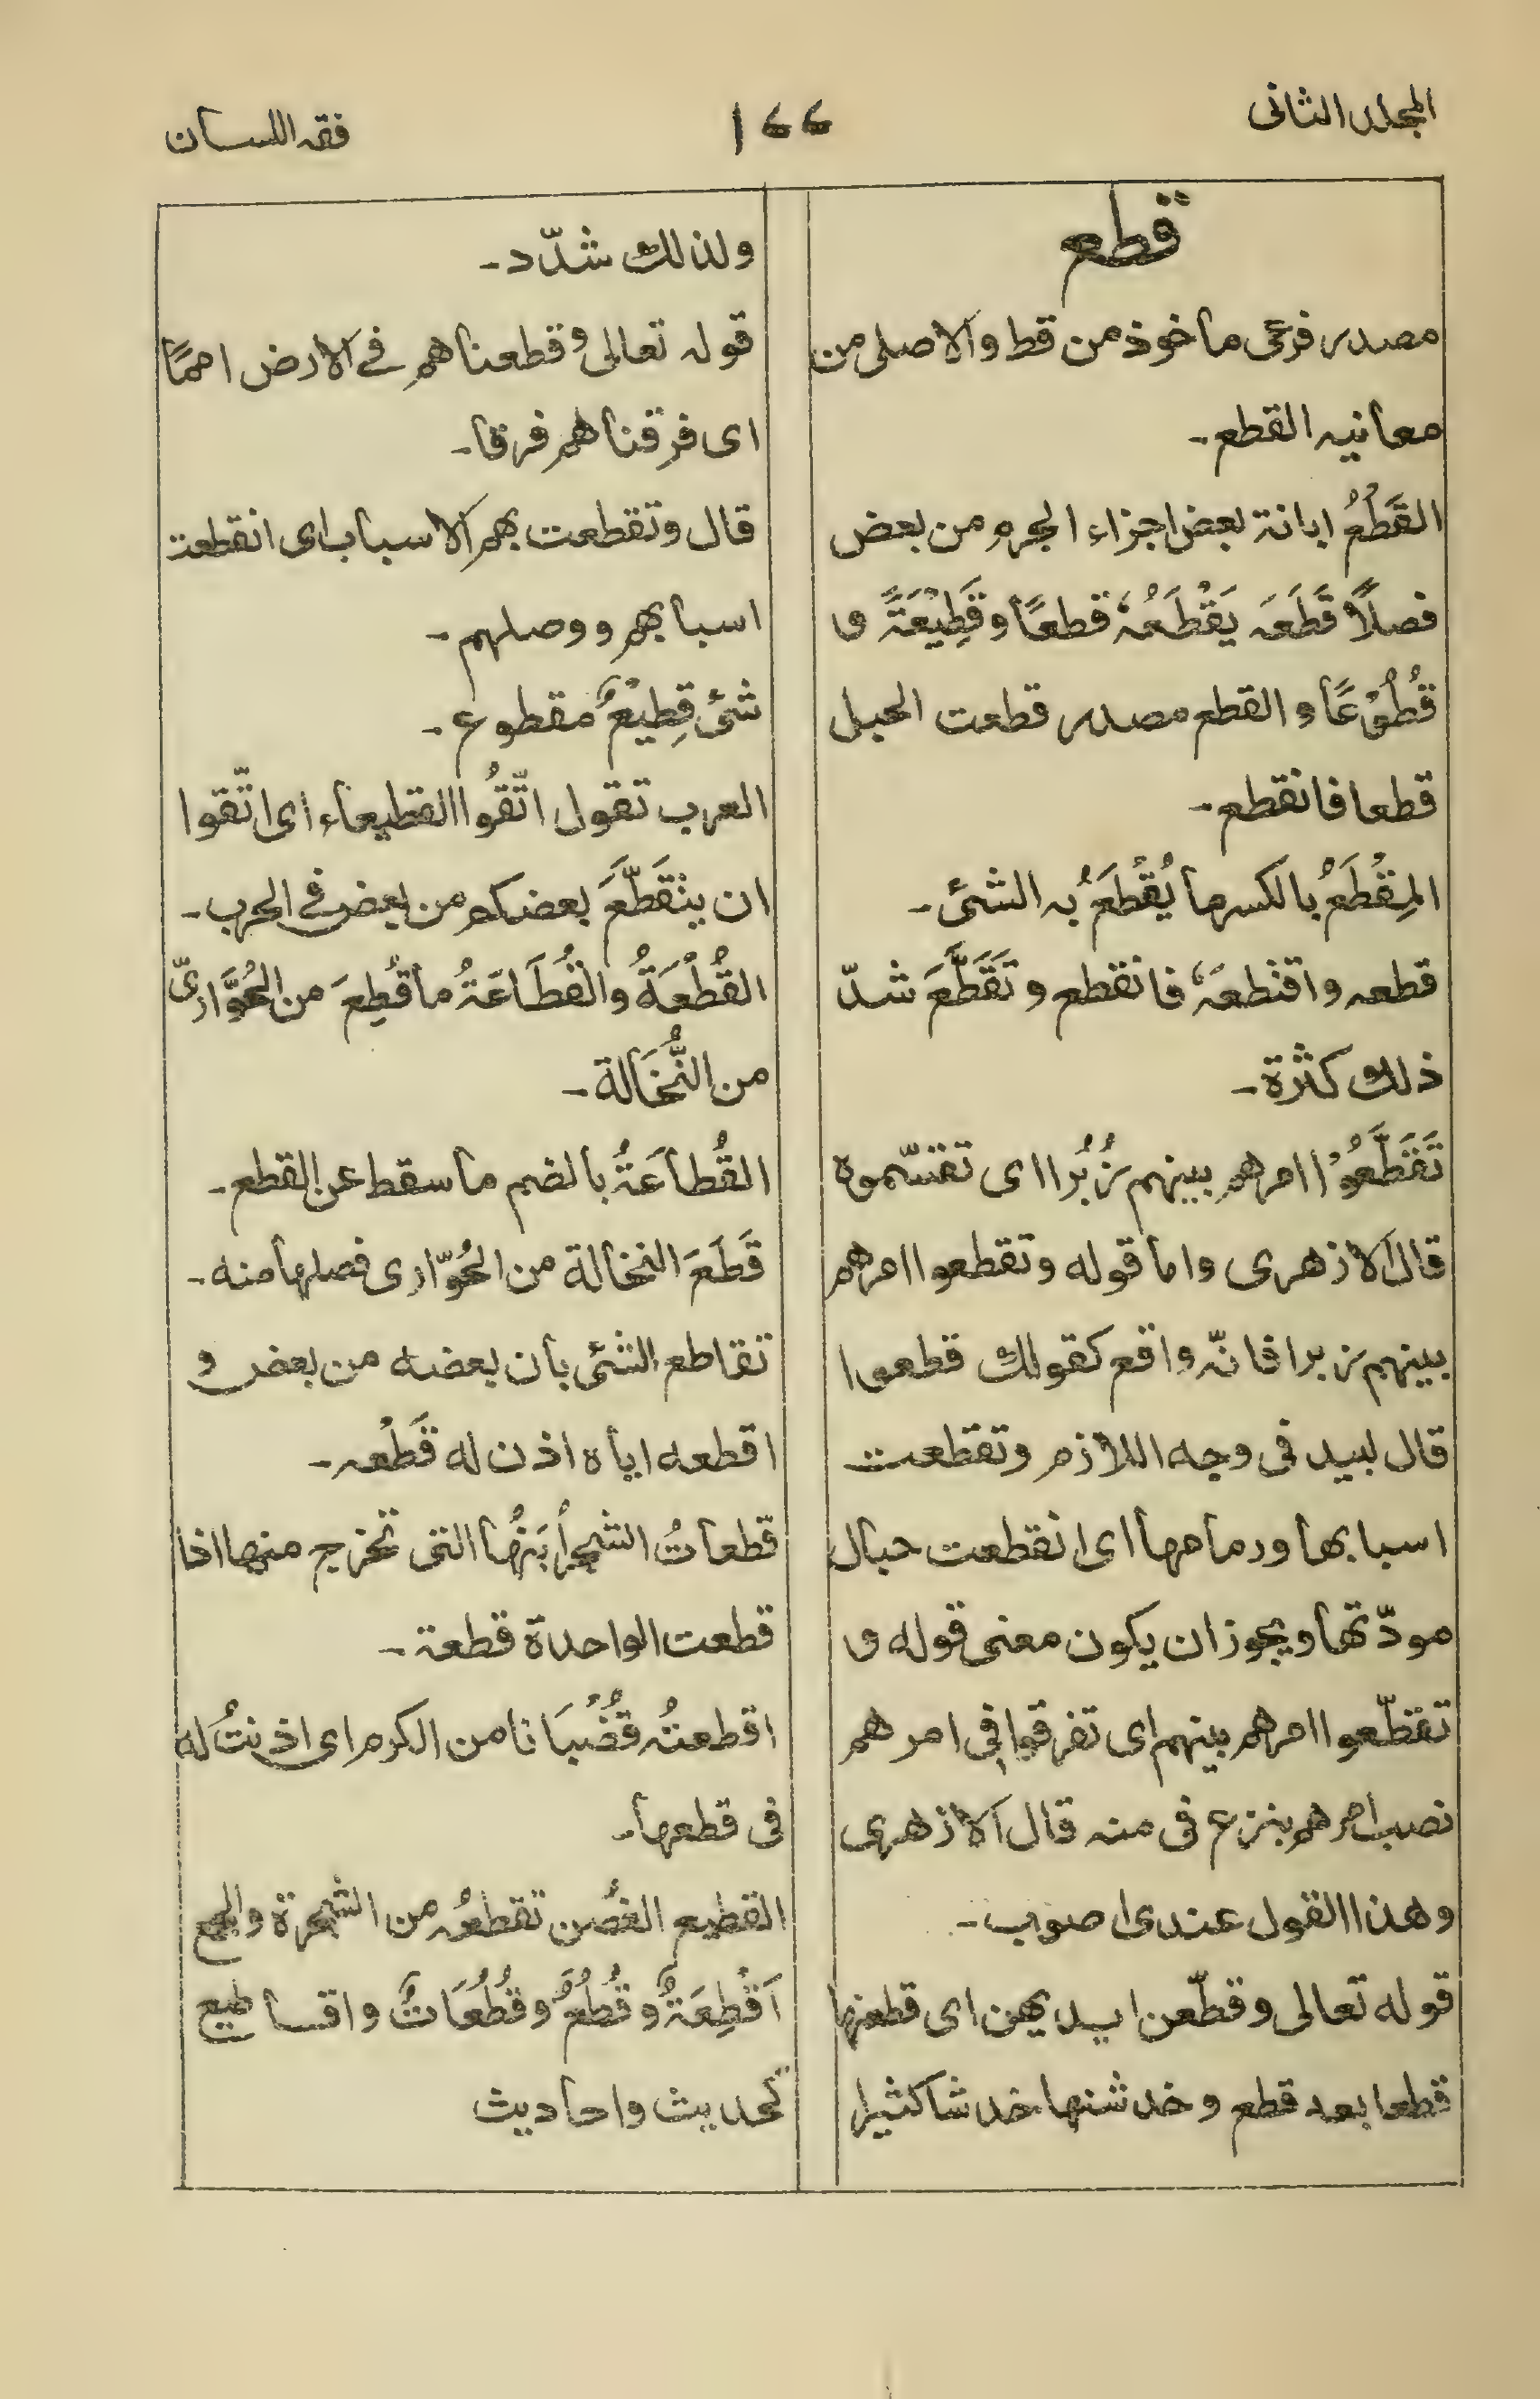 المجلد الثانى
١٧٧
فقه اللسان
قطع
مصدر فرعى ماخوذ من قط والاصلى من
معانيه القطع۔
القَطْعُ ابانة بعض اجزاء الجرم من بعض
فصلاً قَطَعَه يَقْطَعُهٗ قطعًا وقَطِيْعَةً و
قُطُوْعًا والقطع مصدر قطعت الحبل
قطعا فانقطع۔
المِقْطَعُ بالكسر ما يُقْطَعُ به الشئ۔
قطعه واقتطعَهٗ فانقطع وتَقَطَّعَ شدّ
ذلك كثرة۔
تَقَطَّعُوْا امرهم بينهم زُبُرا اى تقسّموه
قال الازهرى واما قوله وتقطعوا امرهم
بينهم زبرا فانّه واقع كقولك قطعوا
قال لبيد فى وجه اللازم وتقطعت
اسبابها ورمامها اى انقطعت حبال
مودّتها ويجوز ان يكون معنى قوله و
تقطّعوا امرهم بينهم اى تفرقوا فى امرهم
نصب امرهم بنزع فى منه قال الازهرى
وهذا القول عندى اصوب۔
قوله تعالى وقطّعن ايديهن اى قطعنها
قطعا بعد قطع وخدشنها خدشا كثيرا
ولذلك شدّد۔
قوله تعالى وقطعناهم فے الارض امما
اى فرقناهم فرقا۔
قال وتقطعت بهم الاسباب اى انقطعت
اسبابهم ووصلهم۔
شئ قِطِيْعٌ مقطوع۔
العرب تقول اتّقُوا القطيعاء اى اتّقوا
ان ينْقَطَّعَ بعضكم من بعض فے الحرب۔
القُطْعَةُ والقُطَاعَةُ ما قُطِعَ من الحُوَّارىّ
من النُّخَالة۔
القُطاعَةُ بالضم ما سقط عن القطع۔
قَطَعَ النخالة من الحُوّارى فصلها منه۔
تقاطع الشئ بان بعضه من بعض و
اقطعه اياه اذن له قَطْعه۔
قطعاتُ الشجر اُبَنُها التى تخرج منها اذا
قطعت الواحدة قطعة۔
اقطعتُه قُضْبَانا من الكرم اى اذنتُ له
فى قطعها۔
القطيع الغُصن تقطعُه من الشجرة والجمع
اَقْطِعَةٌ وقُطُعٌ وقُطُعَاتٌ واقاطيع
كحديث واحاديث